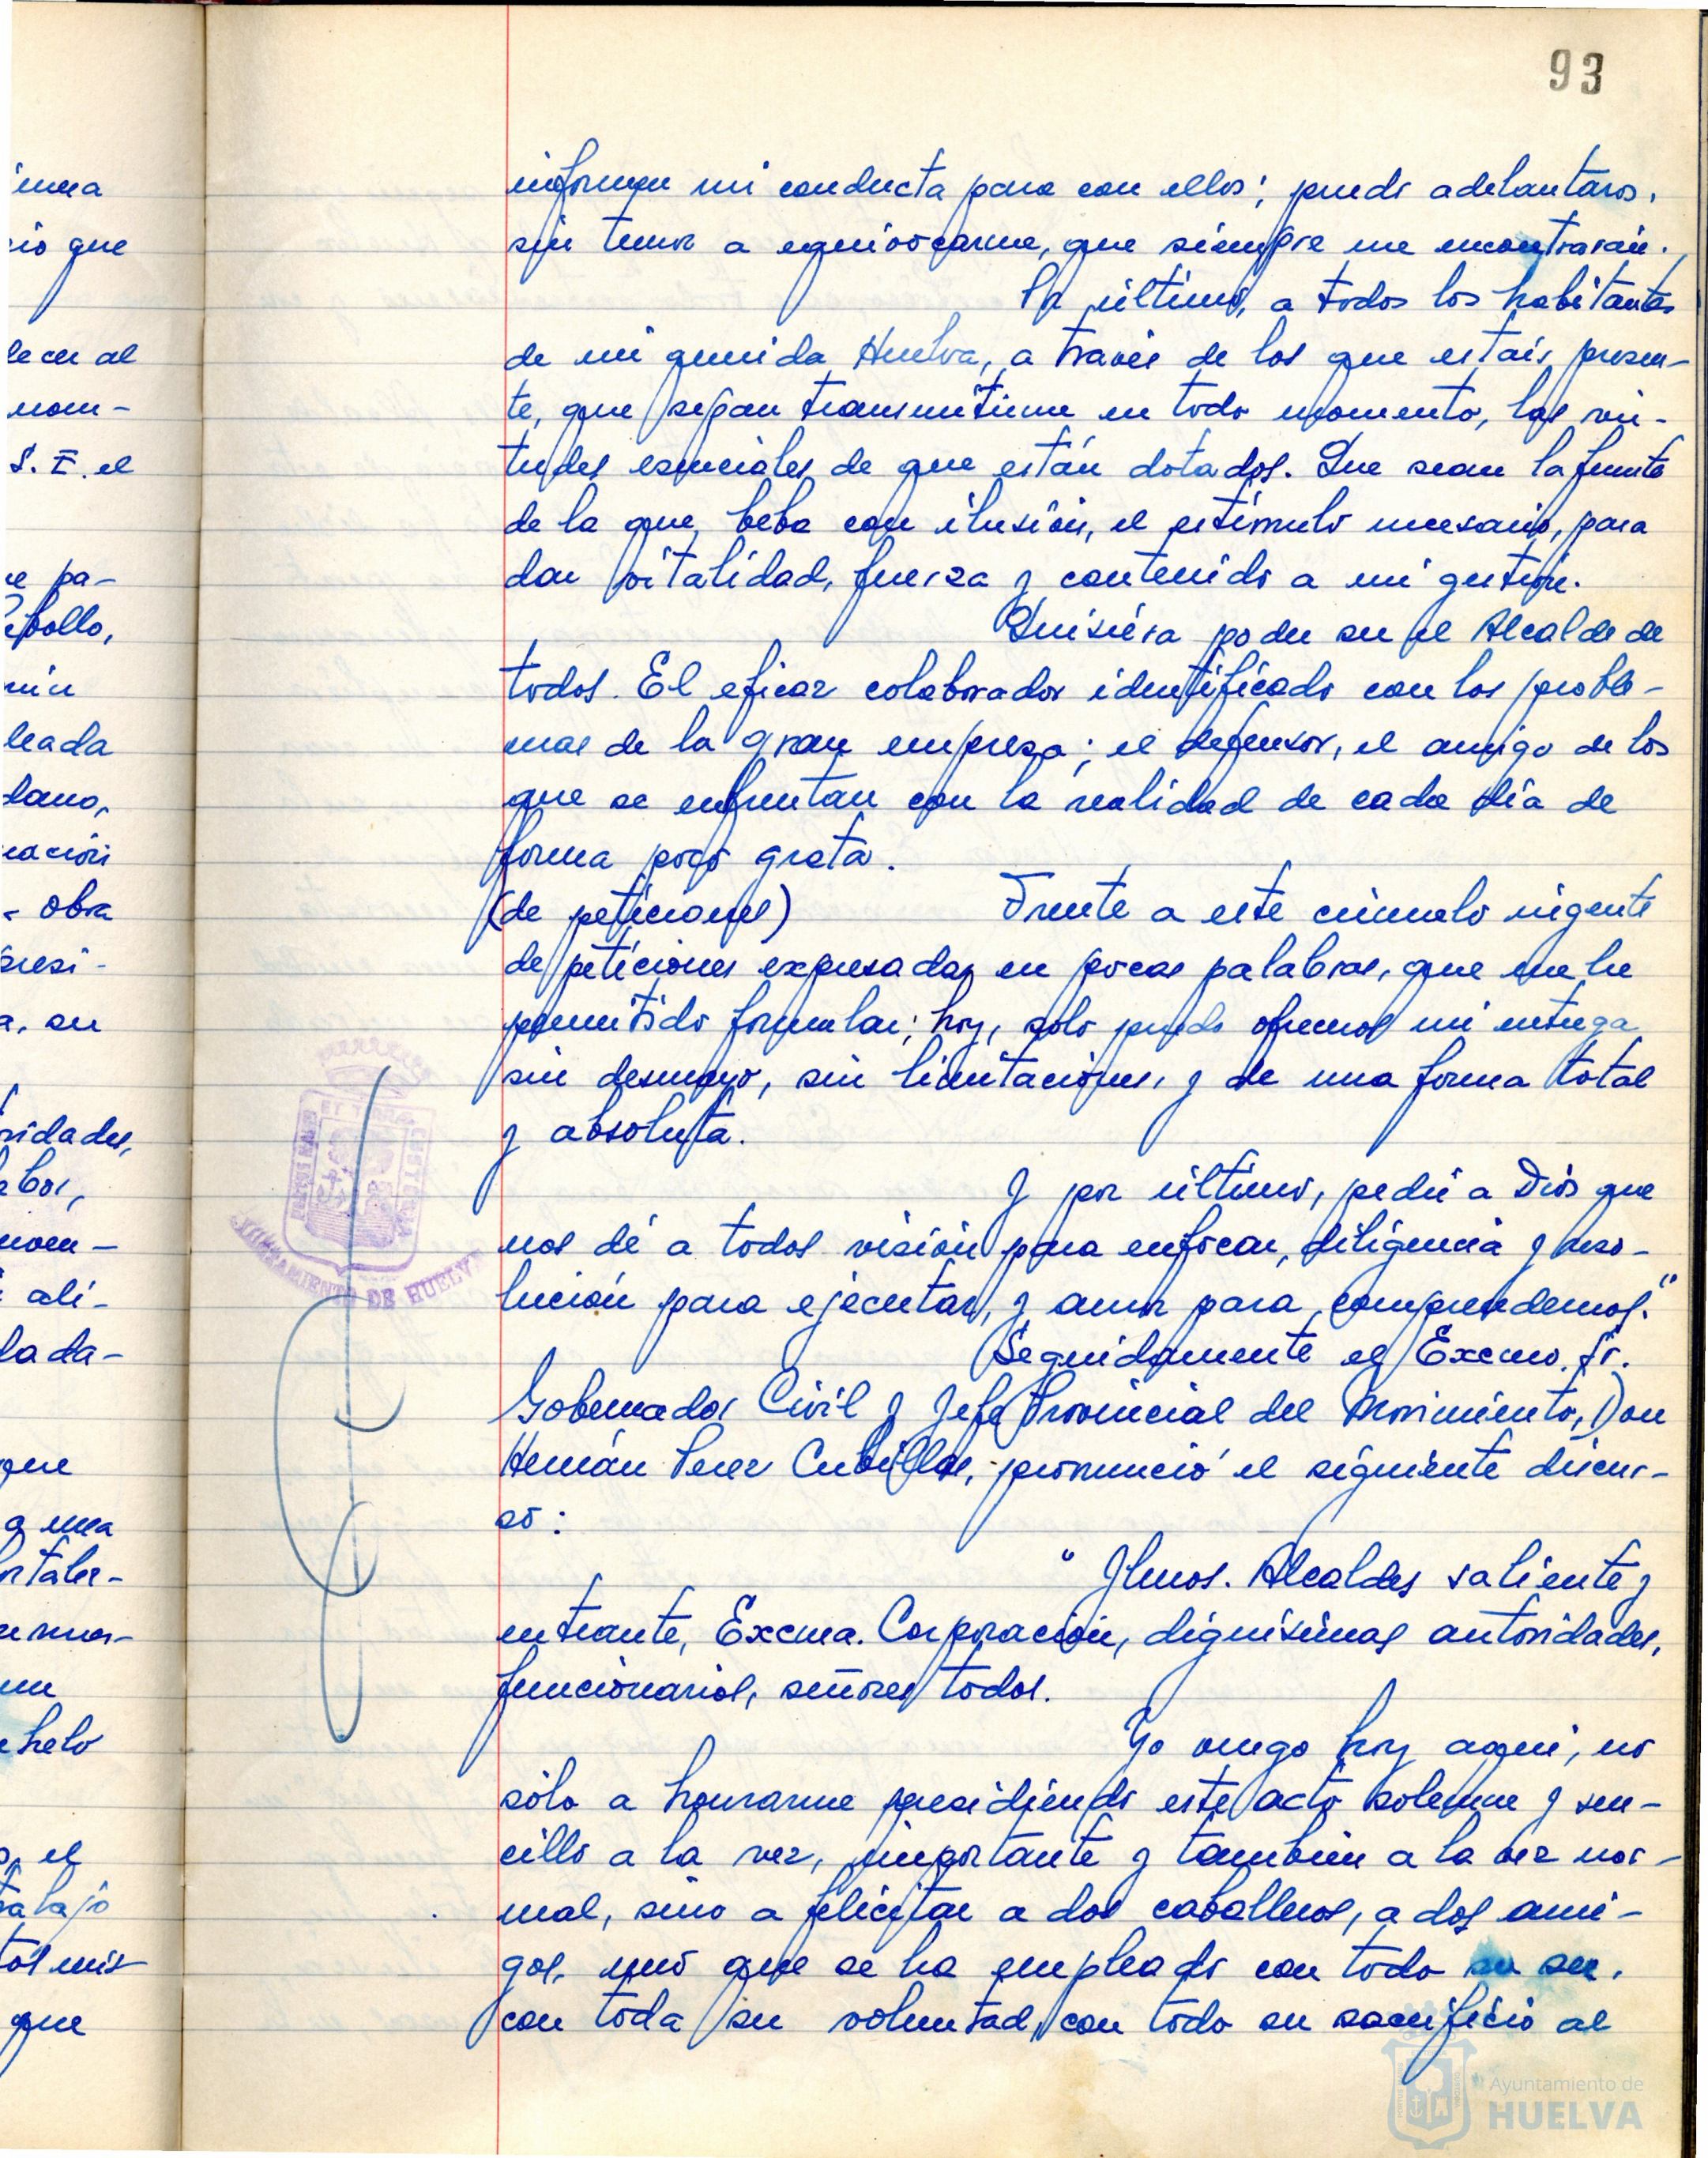 93
informen mi conducta para con ellos; puedo adelantaros,
sin temor a equivocarme, que siempre me encontrarán.
Por último, a todos los habitantes
de mi querida Huelva, a través de los que estáis presen-
te, que sepan transmitirme en todo momento, las vir-
tudes esenciales de que están dotados. Que sean la fuente
de la que beba con ilusión, el estímulo necesario, para
dar vitalidad, fuerza y contenido a mi gestión.
Quisiera poder ser el Alcalde de
todos. El eficaz colaborador identificado con los proble-
mas de la gran empresa; el defensor, el amigo de los
que se enfrentan con la realidad de cada día de
forma poco grata.
(de peticiones) Frente a este cúmulo ingente
de peticiones expresadas en pocas palabras, que me he
permitido formular; hoy, solo puedo ofreceros mi entrega
sin desmayo, sin limitaciones, y de una forma total
y absoluta.
Y por último, pedir a Dios que
nos dé a todos visión para enfocar, diligencia y reso-
lución para ejecutar, y amor para comprendernos."
Seguidamente el Excmo. Sr.
Gobernador Civil y Jefe Provincial del Movimiento, Don
Hernán Perez Cubillas, pronunció el siguiente discur-
so:
"Ilmos. Alcaldes saliente y
entrante, Excma. Corporación, dignísimas autoridades,
funcionarios, señores todos.
Yo vengo hoy aquí, no
sólo a honrarme presidiendo este acto solemne y sen-
cillo a la vez, importante y también a la vez nor-
mal, sino a felicitar a dos caballeros, a dos ami-
gos, uno que se ha empleado con todo su ser,
con toda su voluntad, con todo su sacrificio al
AYUNTAMIENTO DE HUELVA
Ayuntamiento de
HUELVA